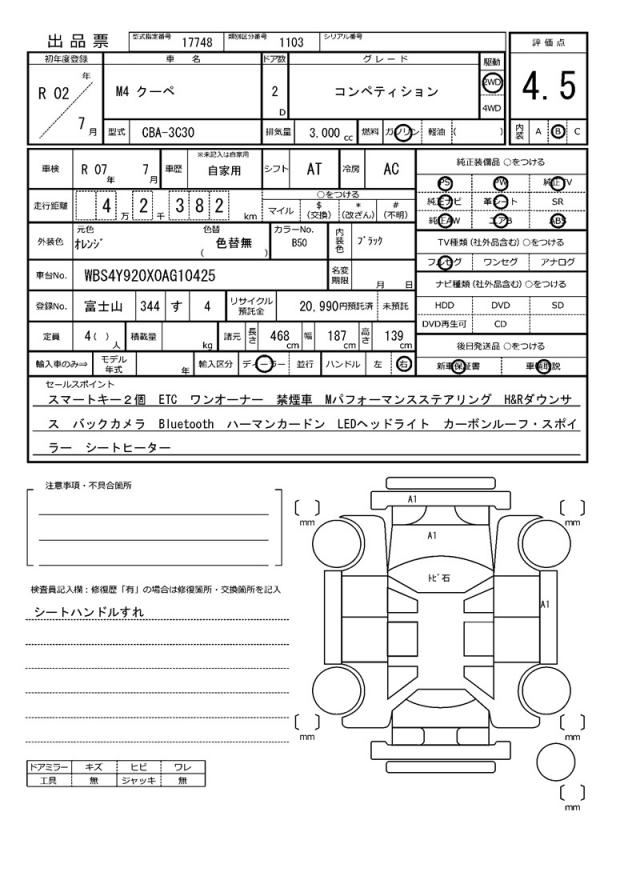 出品票 型式指定番号 17748 類別区分番号 1103 シリアル番号
評価点
4.5
内装 A B C
初年度登録 車名 ドア数 グレード 駆動
R 02 年 7 月
M4 クーペ 2 D コンペティション 2WD 4WD
型式 CBA-3C30 排気量 3,000 cc 燃料 ガソリン 軽油 ( )
車検 R 07 年 7 月 車歴 ※未記入は自家用 自家用 シフト AT 冷房 AC
走行距離 4 万 2 千 3 8 2 km
○をつける
マイル $ (交換) * (改ざん) # (不明)
外装色 元色 オレンジ 色替 色替無 ( ) カラーNo. B50 内装色 ブラック
車台No. WBS4Y920X0AG10425 名変期限 月 日
登録No. 富士山 344 す 4 リサイクル預託金 20,990円預託済 未預託
定員 4( ) 人 積載量 kg 諸元 長さ 468 cm 幅 187 cm 高さ 139 cm
輸入車のみ⇒ モデル年式 年 輸入区分 ディーラー 並行 ハンドル 左 右
純正装備品 ○をつける
PS PW 純正TV
純正ナビ 革シート SR
純正AW エアB ABS
TV種類(社外品含む) ○をつける
フルセグ ワンセグ アナログ
ナビ種類(社外品含む) ○をつける
HDD DVD SD
DVD再生可 CD
後日発送品 ○をつける
新車保証書 車輌取説
セールスポイント
スマートキー2個 ETC ワンオーナー 禁煙車 Mパフォーマンスステアリング H&Rダウンサ
ス バックカメラ Bluetooth ハーマンカードン LEDヘッドライト カーボンルーフ・スポイ
ラー シートヒーター
注意事項・不具合箇所
検査員記入欄:修復歴「有」の場合は修復箇所・交換箇所を記入
シートハンドルすれ
ドアミラー キズ ヒビ ワレ
工具 無 ジャッキ 無
A1
mm
mm
A1
トビ石
A1
mm
mm
mm